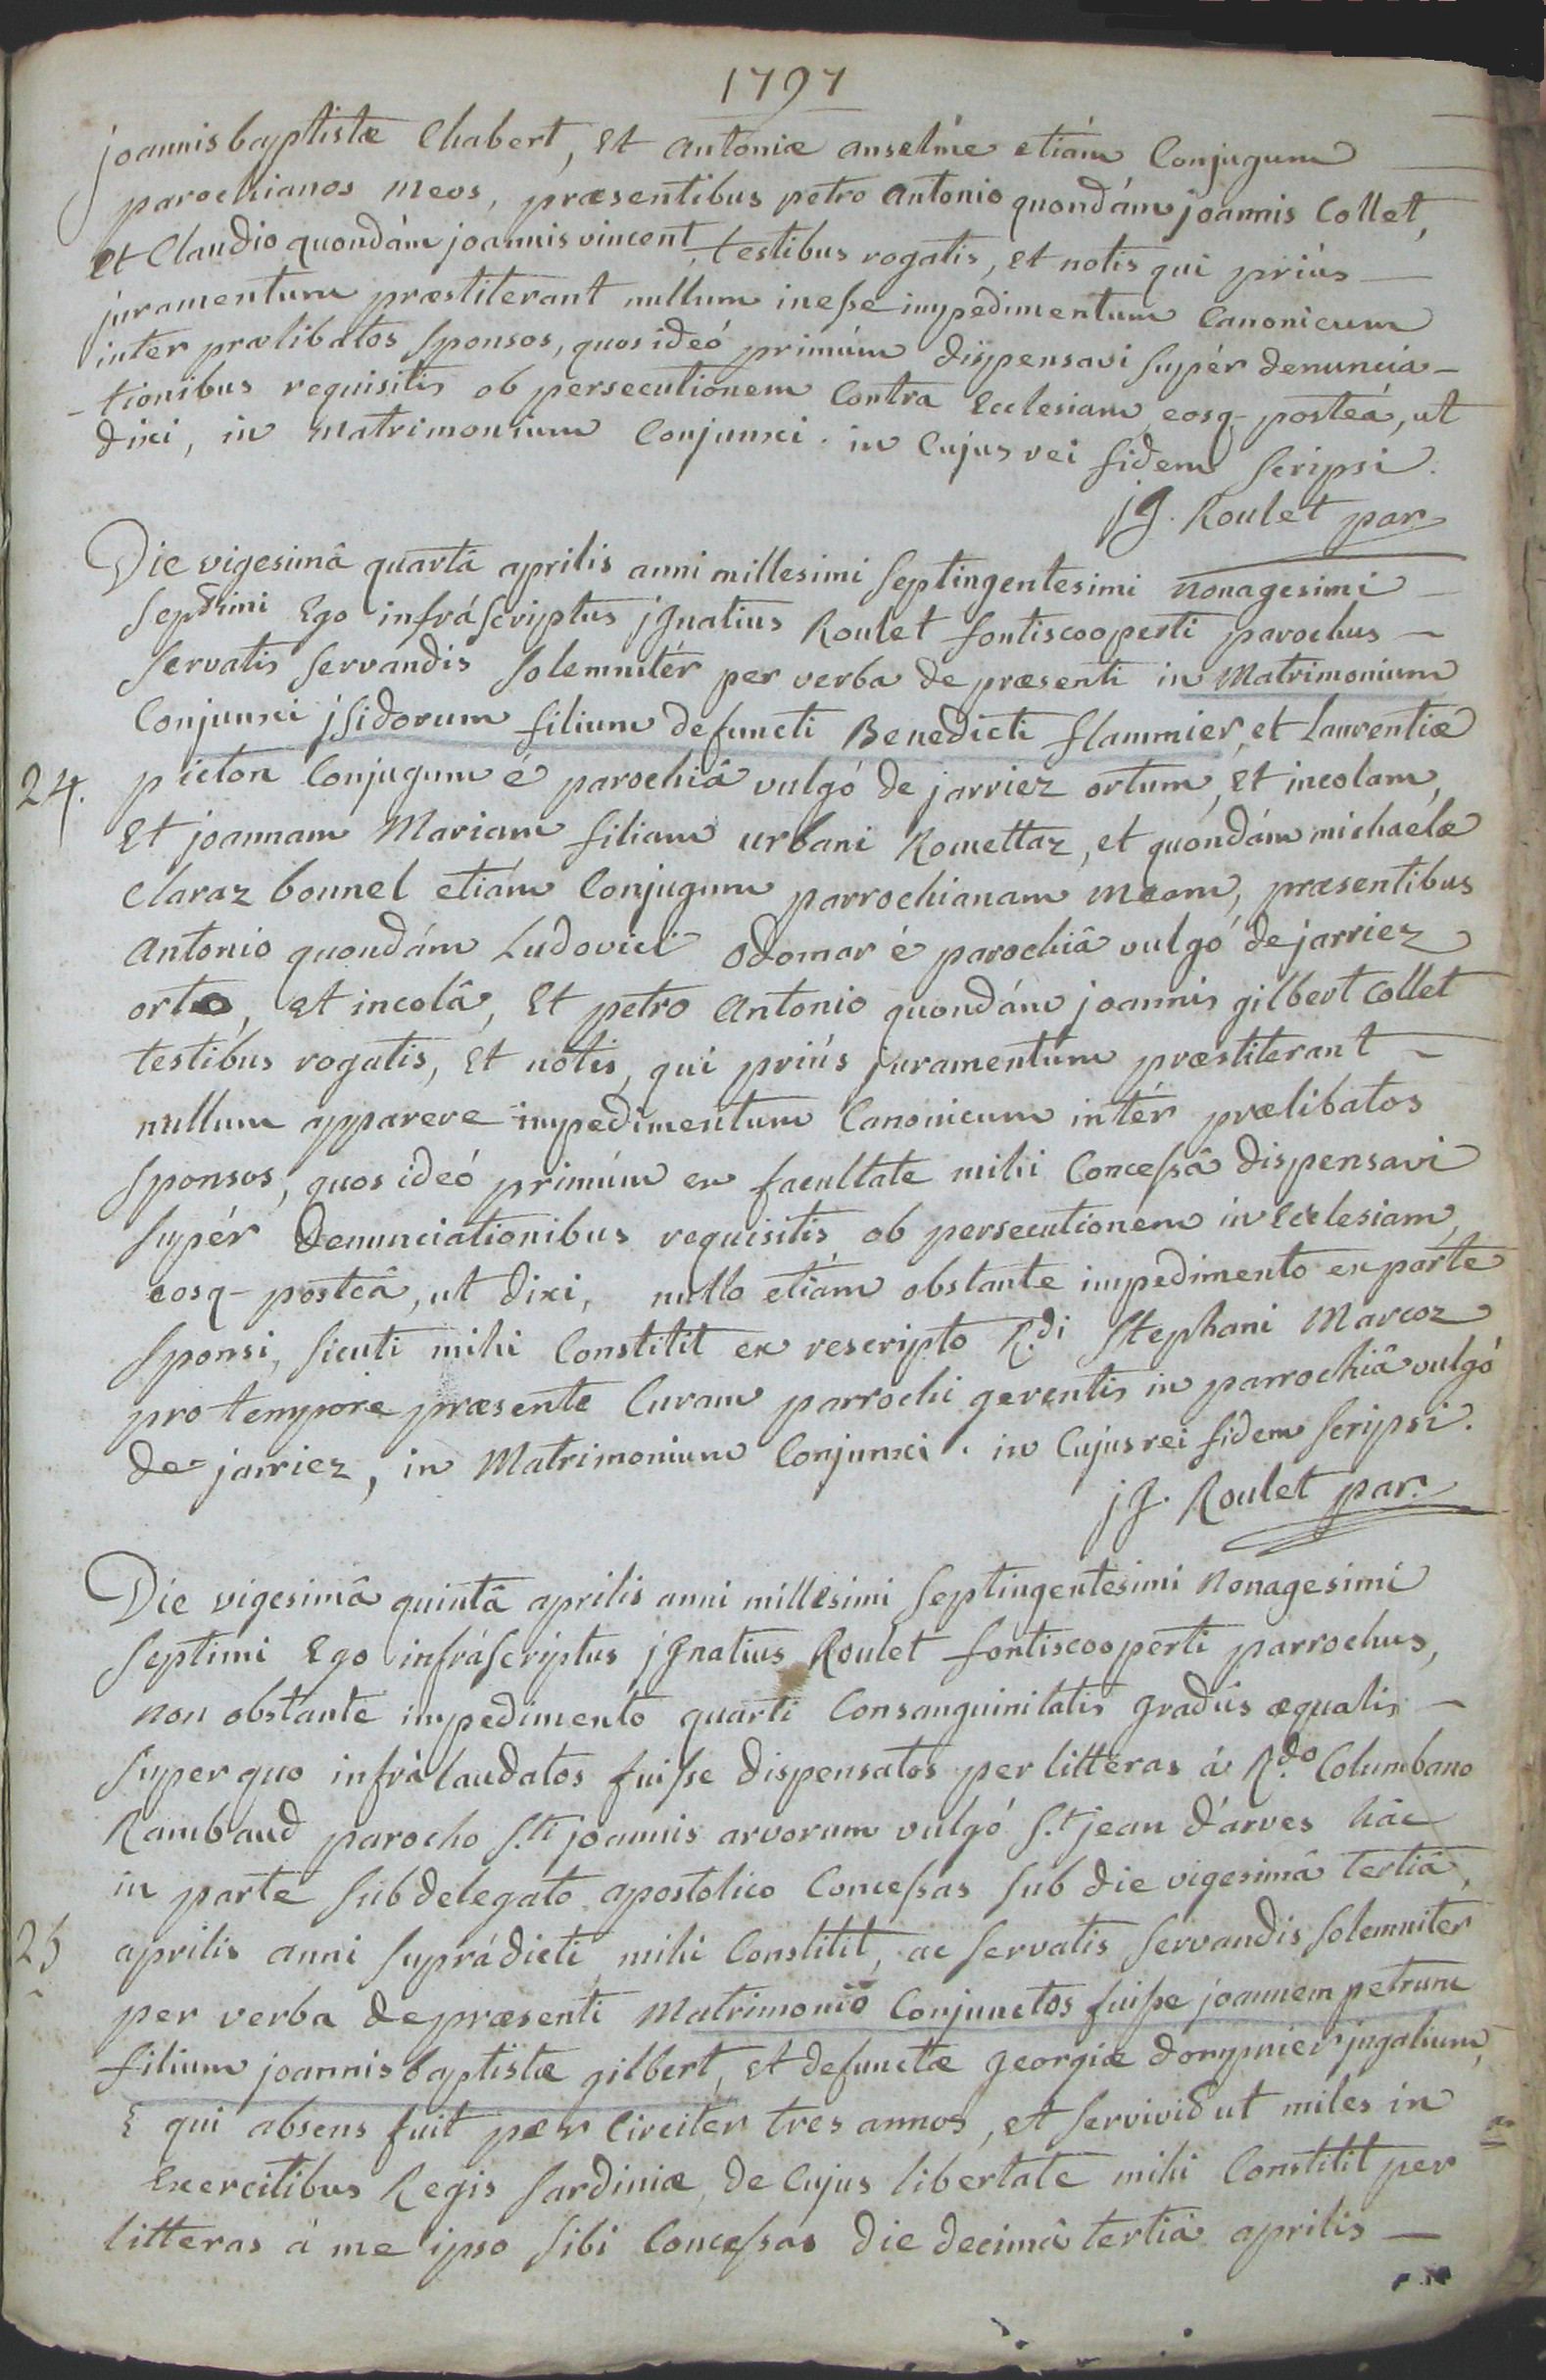 1797
joannis baptistæ Chabert, Et Antoniæ anselme etiám Conjugum
parochianos meos, præsentibus petro Antonio quondám joannis Collet,
Et Claudio quondám joannis vincent, testibus rogatis, et notis qui priús —
juramentum præstiterant nullum inesse impedimentum Canonicum
inter prælibatos Sponsos, quos ideó primúm dispensavi Supér denuncia-
-tionibus requisitis ob persecutionem Contra Ecclesiam, eosq- posteá, ut
dixi, in Matrimonium Conjunxi. in Cujus rei fidem Scripsi.
jg. Roulet par.
Die vigesimâ quartâ aprilis anni millesimi Septingentesimi nonagesimi —
Septimi Ego infráScriptus jgnatius Roulet fontiscooperti parochus —
Servatis Servandis Solemnitér per verba de præsenti in Matrimonium
Conjunxi jsidorum filium defuncti Benedicti flammier, et Laurentiæ
24. picton Conjugum é parochiâ vulgó de jarriez ortum, Et incolam,
Et joannam Mariam filiam urbani Romettaz, et quondám michaelæ
Claraz bonnel etiám Conjugum parrochianam meam, præsentibus
Antonio quondám Ludovici Odomar é parochiâ vulgó de jarriez
orto, et incolâ, Et petro Antonio quondám joannis gilbert Collet
testibus rogatis, Et notis, qui priús juramentum præstiterant —
nullum apparere impedimentum Canonicum intér prælibatos
Sponsos, quos ideó primúm ex facultate mihi Concessâ dispensavi
Supér Denunciationibus requisitis ob persecutionem in Ecclesiam,
eosq- posteâ, ut dixi, nullo etiám obstante impedimento ex parte
Sponsi, Sicuti mihi Constitit ex rescripto R.di Stephani Marcoz
pro tempore præsente Curam parrochi gerentis in parrochiâ vulgó
de jarriez, in Matrimonium Conjunxi. in Cujus rei fidem Scripsi.
jg. Roulet par.
Die vigesimâ quintâ aprilis anni millesimi Septingentesimi Nonagesimi
Septimi Ego infráScriptus jgnatius Roulet fontiscooperti parrochus,
non obstante impedimento quarti Consanguinitatis gradûs æqualis —
Super quo infrà laudatos fuisse dispensatos per litteras á R.do Columbano
Rambaud parocho S.ti joannis arvorum vulgó S.t jean d'arves hâc
in parte Subdelegato apostolico Concessas Sub die vigesimâ tertiâ,
25 aprilis anni Suprádicti mihi Constitit, ac Servatis Servandis Solemniter
per verba de præsenti Matrimonio Conjunctos fuisse joannem petrum
filium joannis baptistæ gilbert, Et defunctæ georgiæ dompnier jugalium,
qui absens fuit per Circiter tres annos, et Servivid ut miles in
Exercitibus Regis Sardiniæ, de Cujus libertate mihi Constitit per
litteras á me ipso Sibi Concessas die decimâ tertiâ aprilis —